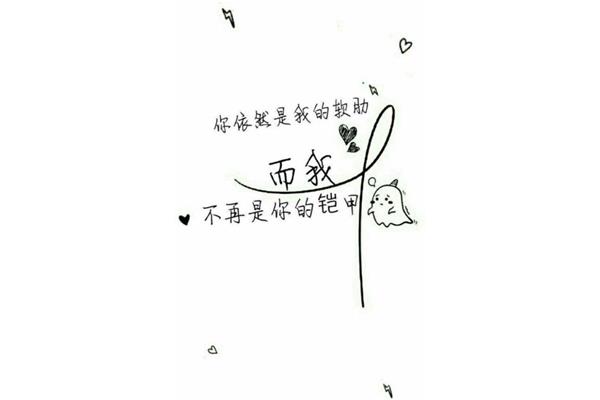 你依然是我的软肋
而我
不再是你的铠甲